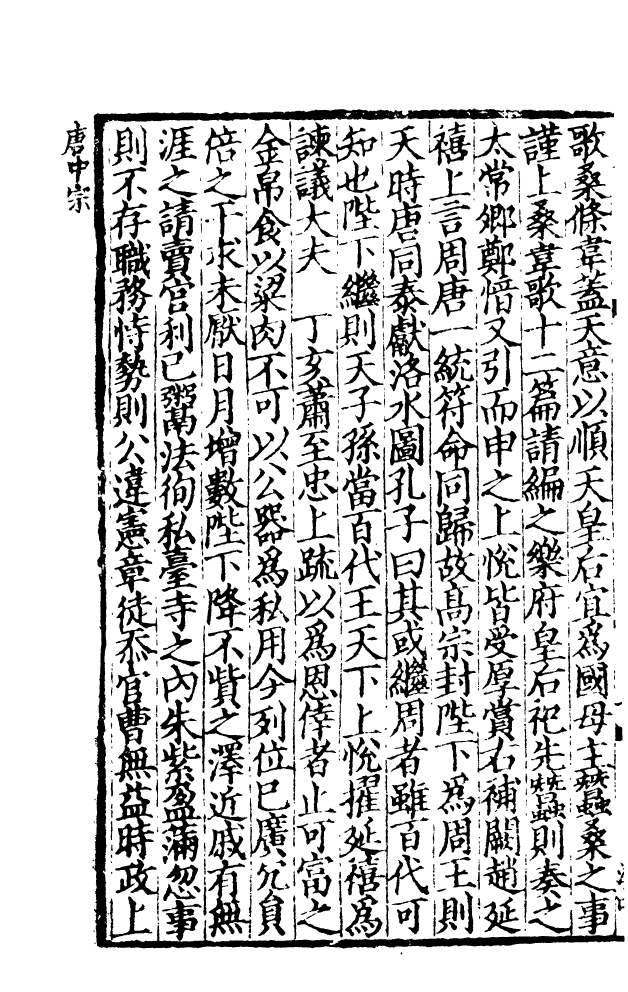 歌桑條韋蓋天意以順天皇后宜爲國母主蠶桑之事
謹上桑韋歌十二篇請編之樂府皇后祀先蠶則奏之
太常卿鄭愔又引而申之上悅皆受厚賞右補闕趙延
禧上言周唐一統符命同歸故高宗封陛下爲周王則
天時唐同泰獻洛水圖孔子曰其或繼周者雖百代可
知也陛下繼則天子孫當百代王天下上悅擢延禧爲
諫議大夫　丁亥蕭至忠上疏以爲恩倖者止可富之
金帛食以粱肉不可以公器爲私用今列位已廣冗員
倍之干求未厭日月增數陛下降不貲之澤近戚有無
涯之請賣官利己鬻法徇私臺寺之內朱紫盈滿忽事
則不存職務恃勢則公違憲章徒忝官曹無益時政上
唐中宗